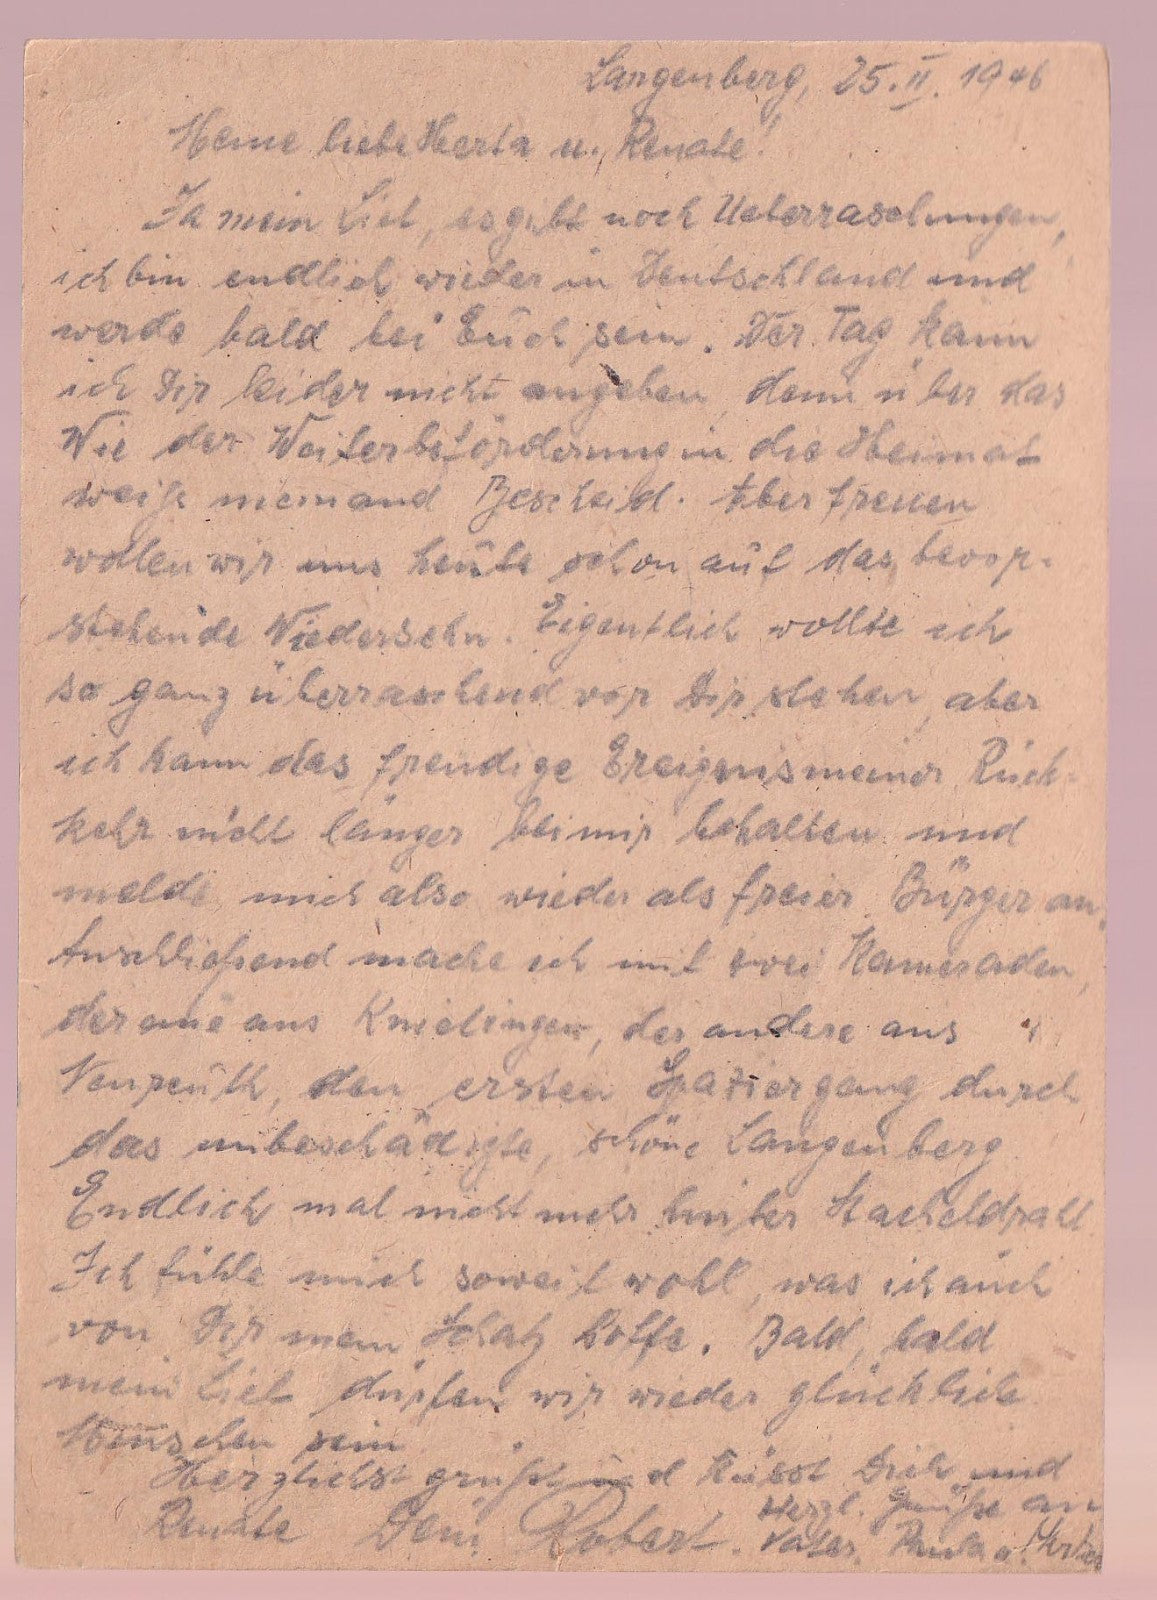 Langenberg, 25. II. 1946
Meine liebe Herta u. Renate!
Ja mein Lieb, es gibt noch Ueberraschungen,
ich bin endlich wieder in Deutschland und
werde bald bei Euch sein. Der Tag kann
ich Dir leider nicht angeben, denn über das
Wie der Weiterbeförderung in die Heimat
weiß niemand Bescheid. Aber freuen
wollen wir uns heute schon auf das bevor-
stehende Wiedersehn. Eigentlich wollte ich
so ganz überraschend vor Dir stehen, aber
ich kann das freudige Ereignis meiner Rück-
kehr nicht länger bei mir behalten und
melde mich also wieder als freier Bürger an.
Anschließend mache ich mit zwei Kameraden,
der eine aus Knielingen, der andere aus
Neureuth, den ersten Spaziergang durch
das unbeschädigte, schöne Langenberg.
Endlich mal nicht mehr hinter Stacheldraht.
Ich fühle mich soweit wohl, was ich auch
von Dir mein Schatz hoffe. Bald, bald
mein Lieb dürfen wir wieder glückliche
Menschen sein
Herzlichst grüßt und küsst Dich und
Renate Dein Robert. Herzl. Grüße an
Vater, u.